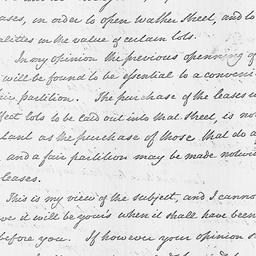 ases, in order to open Walker Street, and to
alities in the value of certain lots.
In my opinion the previous openning of
will be found to be essential to a conveni
air partition. The purchase of the leases u
ject lots to be laid out into that street, is no
tant as the purchase of those that do a
and a fair partition may be made notwi
leases.
This is my view of the subject, and I canno
ve it will be yours when it shall have been
before you. If however your opinion s